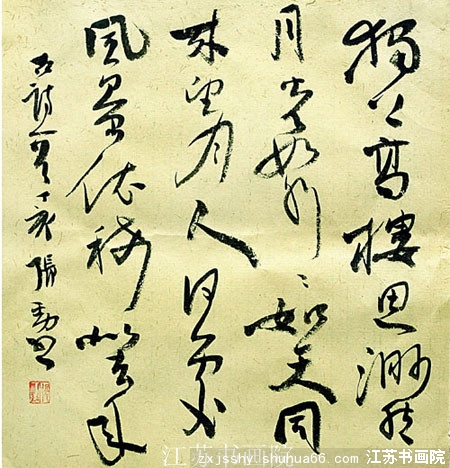 獨上高樓思渺然
月光如水々如天同
来望月人何处
風景依稀似去年
古詩一首丁亥張
江苏书画院
zxjsshy.shuhua66.com 江苏书画院